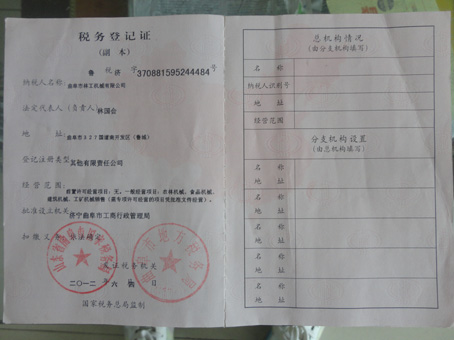 税务登记证
(副 本)
鲁 税 济 字370881595244484号
纳税人名称: 曲阜市林工机械有限公司
法定代表人(负责人) 韩国会
地 址: 曲阜市327国道南开发区(鲁城)
登记注册类型: 其他有限责任公司
经营范围:
经营许可经营项目:无。一般经营项目:农林机械、食品机械、
建筑机械、工矿机械销售
批准设立机关: 济宁曲阜市工商行政管理局
扣缴义务: 依法确定
发证税务机关
二〇一二 年 六 月 日
国家税务总局监制
总机构情况
(由分支机构填写)
名 称
纳税人识别号
地 址
经营范围
分支机构设置
(由总机构填写)
名 称
地 址
名 称
地 址
名 称
地 址
名 称
地 址
名 称
地 址